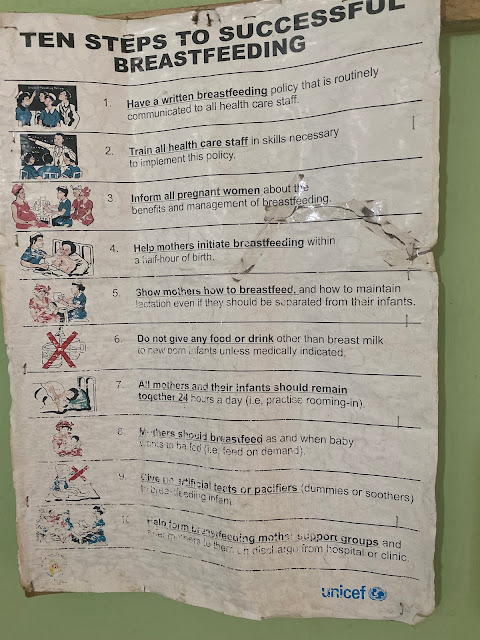 TEN STEPS TO SUCCESSFUL
BREASTFEEDING
1. Have a written breastfeeding policy that is routinely
communicated to all health care staff.
2. Train all health care staff in skills necessary
to implement this policy.
3. Inform all pregnant women about the
benefits and management of breastfeeding.
4. Help mothers initiate breastfeeding within
a half-hour of birth.
5. Show mothers how to breastfeed, and how to maintain
lactation even if they should be separated from their infants.
6. Do not give any food or drink other than breast milk
to new born infants unless medically indicated.
7. All mothers and their infants should remain
together 24 hours a day (i.e, practise rooming-in).
8. Mothers should breasfeed as and when baby
wants to be fed (i.e, feed on demand).
9. Give no artificial teats or pacifiers (dummies or soothers)
to breastfeeding infant
10. Help form breastfeeding mother support groups and
refer mothers to them on discharge from hospital or clinic.
unicef